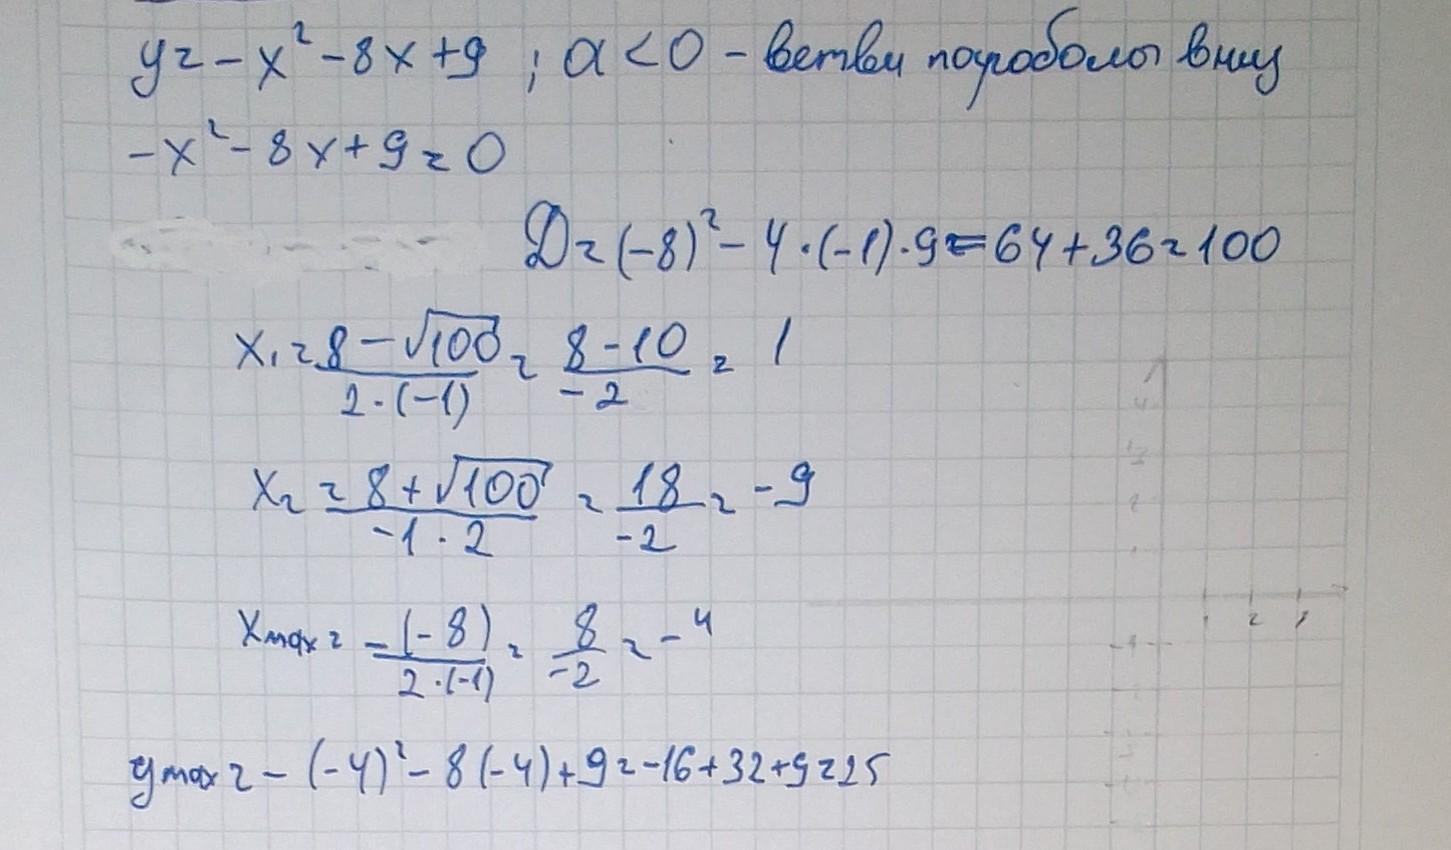 y = -x² - 8x + 9 ; a < 0 - ветви параболы вниз
-x² - 8x + 9 = 0
D = (-8)² - 4·(-1)·9 = 64 + 36 = 100
x₁ = (8 - √100)/(2·(-1)) = (8 - 10)/(-2) = 1
x₂ = (8 + √100)/(-1·2) = 18/(-2) = -9
xmax = -(-8)/(2·(-1)) = 8/(-2) = -4
ymax = -(-4)² - 8(-4) + 9 = -16 + 32 + 9 = 25